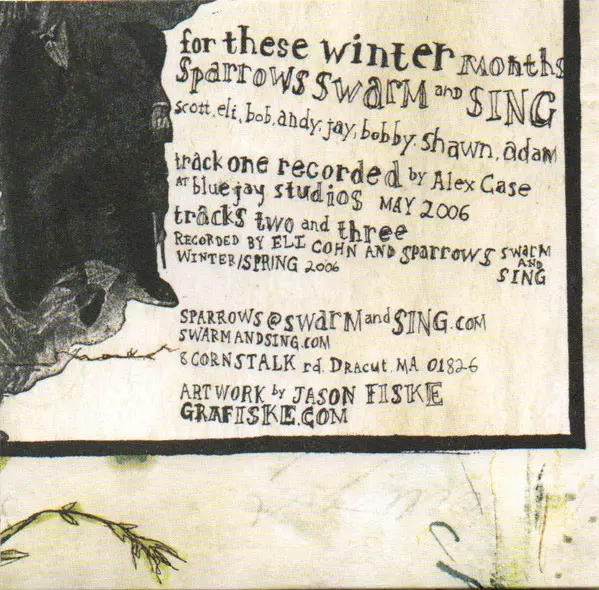 for these winter months
sparrows swarm and SING
scott, eli, bob, andy, jay, bobby, shawn, adam
track one recorded by Alex Case
AT bluejay studios MAY 2006
tracks two and three
RECORDED BY ELI COHN AND sparrows swarm AND SING
WINTER/SPRING 2006
SPARROWS@swarmandSING.com
SWARMANDSING.COM
8 CORNSTALK rd. DRACUT, MA 01826
ARTWORK by JASON FISKE
GRAFISKE.COM